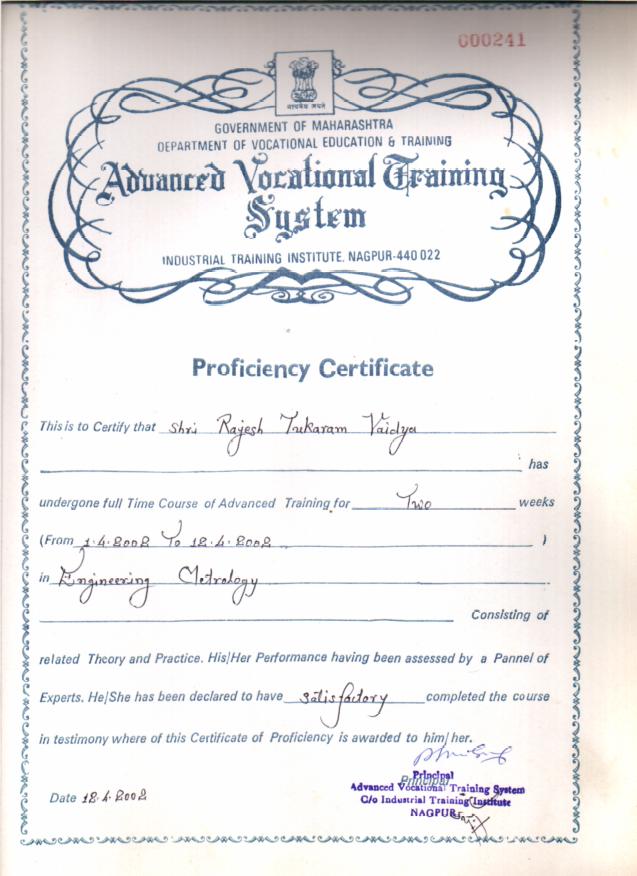 000241
सत्यमेव जयते
GOVERNMENT OF MAHARASHTRA
DEPARTMENT OF VOCATIONAL EDUCATION & TRAINING
Advanced Vocational Training
System
INDUSTRIAL TRAINING INSTITUTE, NAGPUR-440 022
Proficiency Certificate
This is to Certify that Shri Rajesh Tukaram Vaidya
has
undergone full Time Course of Advanced Training for Two weeks
(From 1.4.2002 To 12.4.2002 )
in Engineering Metrology
Consisting of
related Theory and Practice. His/Her Performance having been assessed by a Pannel of
Experts. He/She has been declared to have satisfactory completed the course
in testimony where of this Certificate of Proficiency is awarded to him/her.
Principal
Principal
Advanced Vocational Training System
C/o Industrial Training Institute
NAGPUR
Date 12.4.2002